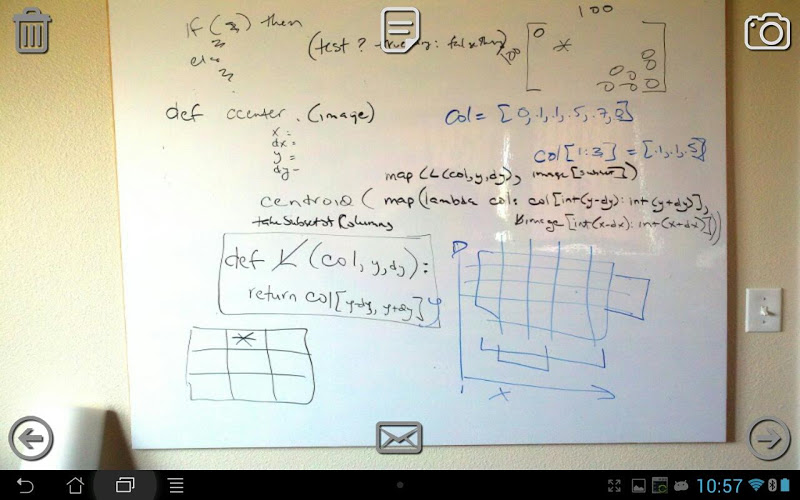 100
if (3) then
3
else
3
(test ? truethg : falsething)
100
0
def ccenter. (image)
x =
dx =
y =
dy =
col = [0, .1, .1, .5, .7, 0]
col[1:3] = [.1, .1, .5]
map (L(col,y,dy), image [subset])
centroid ( map(lambda col: col[int(y-dy): int(y+dy)],
image[int(x-dx): int(x+dx)]))
take Subset of Columns
def L (col, y, dy) :
return col[y-dy, y+dy]
y
x
10:57